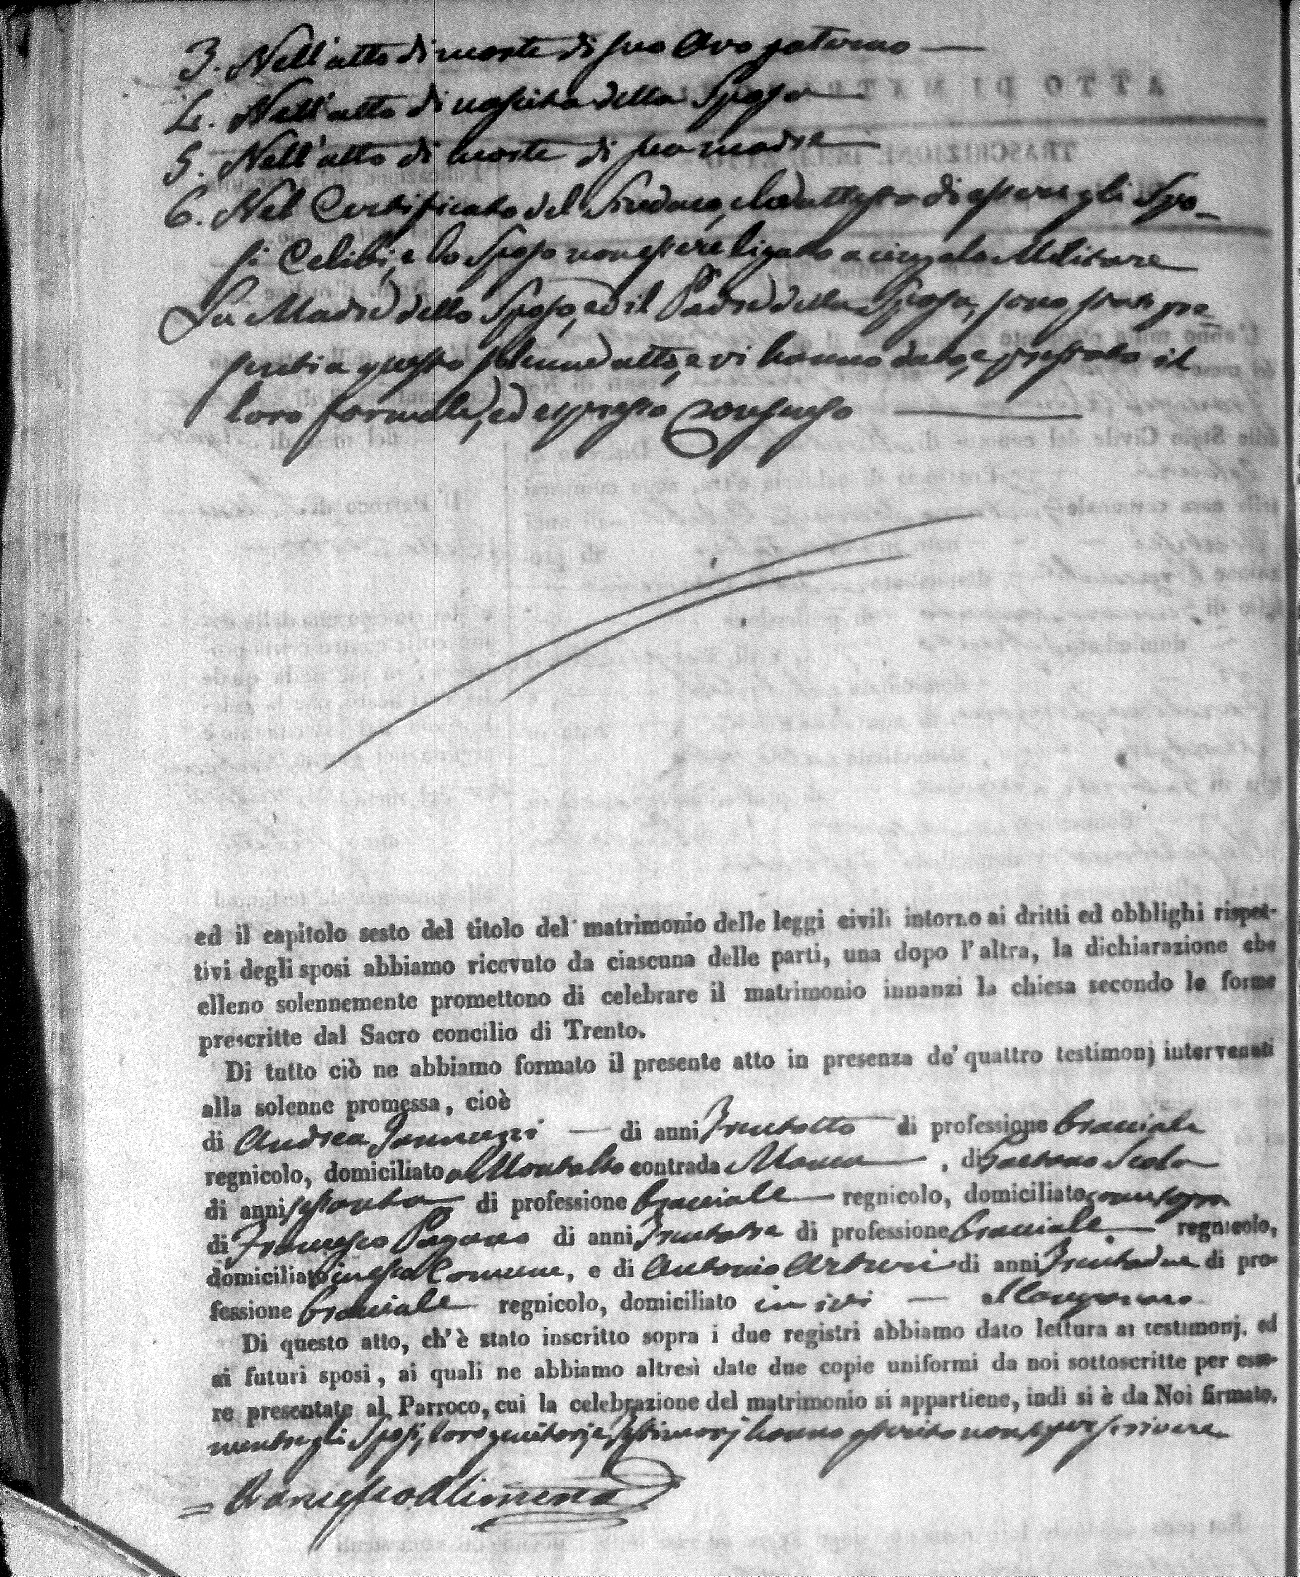 3. Nell'atto di morte di suo Avo paterno —
4. Nell'atto di nascita della Sposa —
5. Nell'atto di morte di sua madre —
6. Nel Certificato del Sindaco, che attesta di essere gli Spo-
si Celibi, e lo Sposo non essere ligato a cingolo Militare
La Madre dello Sposo, ed il Padre della Sposa, sono stati pre
senti a questo solenne atto, e vi hanno dato, e prestato il
loro formale, ed espresso Consenso —
ed il capitolo sesto del titolo del matrimonio delle leggi civili intorno ai dritti ed obblighi rispet-
tivi degli sposi abbiamo ricevuto da ciascuna delle parti, una dopo l'altra, la dichiarazione che
elleno solennemente promettono di celebrare il matrimonio innanzi la chiesa secondo le forme
prescritte dal Sacro concilio di Trento.
Di tutto ciò ne abbiamo formato il presente atto in presenza de' quattro testimonj intervenuti
alla solenne promessa, cioè
di Andrea Iannuzzi — di anni Trentotto di professione bracciale
regnicolo, domiciliato a Montalto contrada , di Gaetano Scola
di anni sessanta di professione bracciale — regnicolo, domiciliato come sopra
di Francesco Pagano di anni Trentatre di professione bracciale — regnicolo,
domiciliato in esso Comune, e di Antonio Arturi di anni Trentadue di pro-
fessione bracciale regnicolo, domiciliato in ivi —
Di questo atto, ch'è stato inscritto sopra i due registri abbiamo dato lettura ai testimonj, ed
ai futuri sposi, ai quali ne abbiamo altresì date due copie uniformi da noi sottoscritte per esse-
re presentate al Parroco, cui la celebrazione del matrimonio si appartiene, indi si è da Noi firmato,
mentre gli Sposi, loro genitori, e testimonj hanno asserito non saper scrivere
= Francesco Alimena